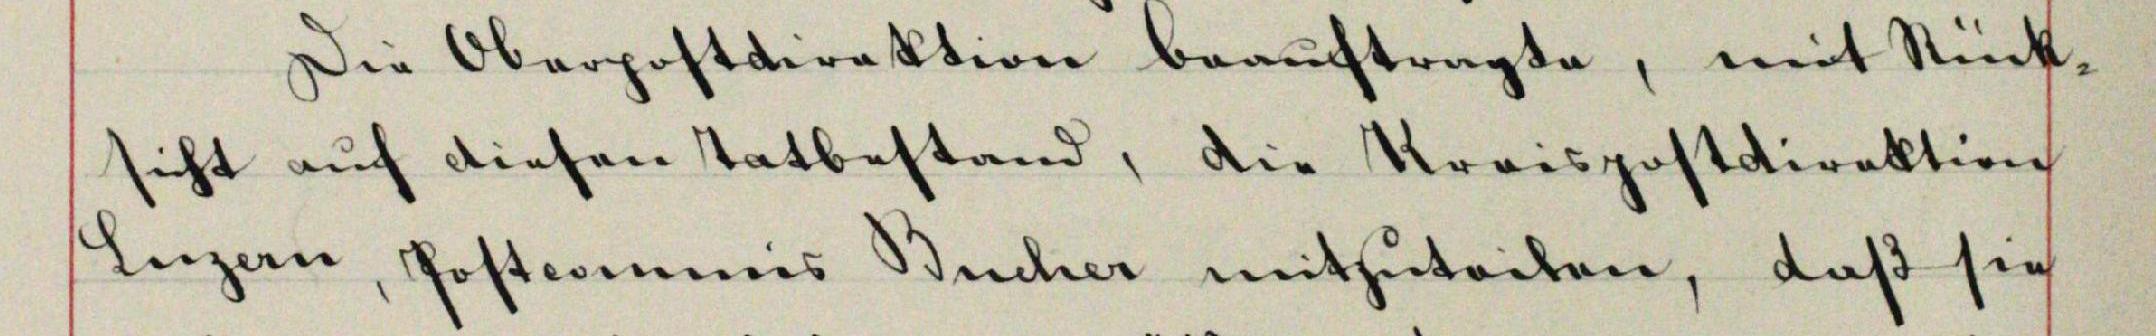 Die Oberpostdirektion beauftragte, mit Rück-
sicht auf diesen Tatbestand, die Kreispostdirektion
Luzern, Postcommis Bucher mitzuteilen, daß sie